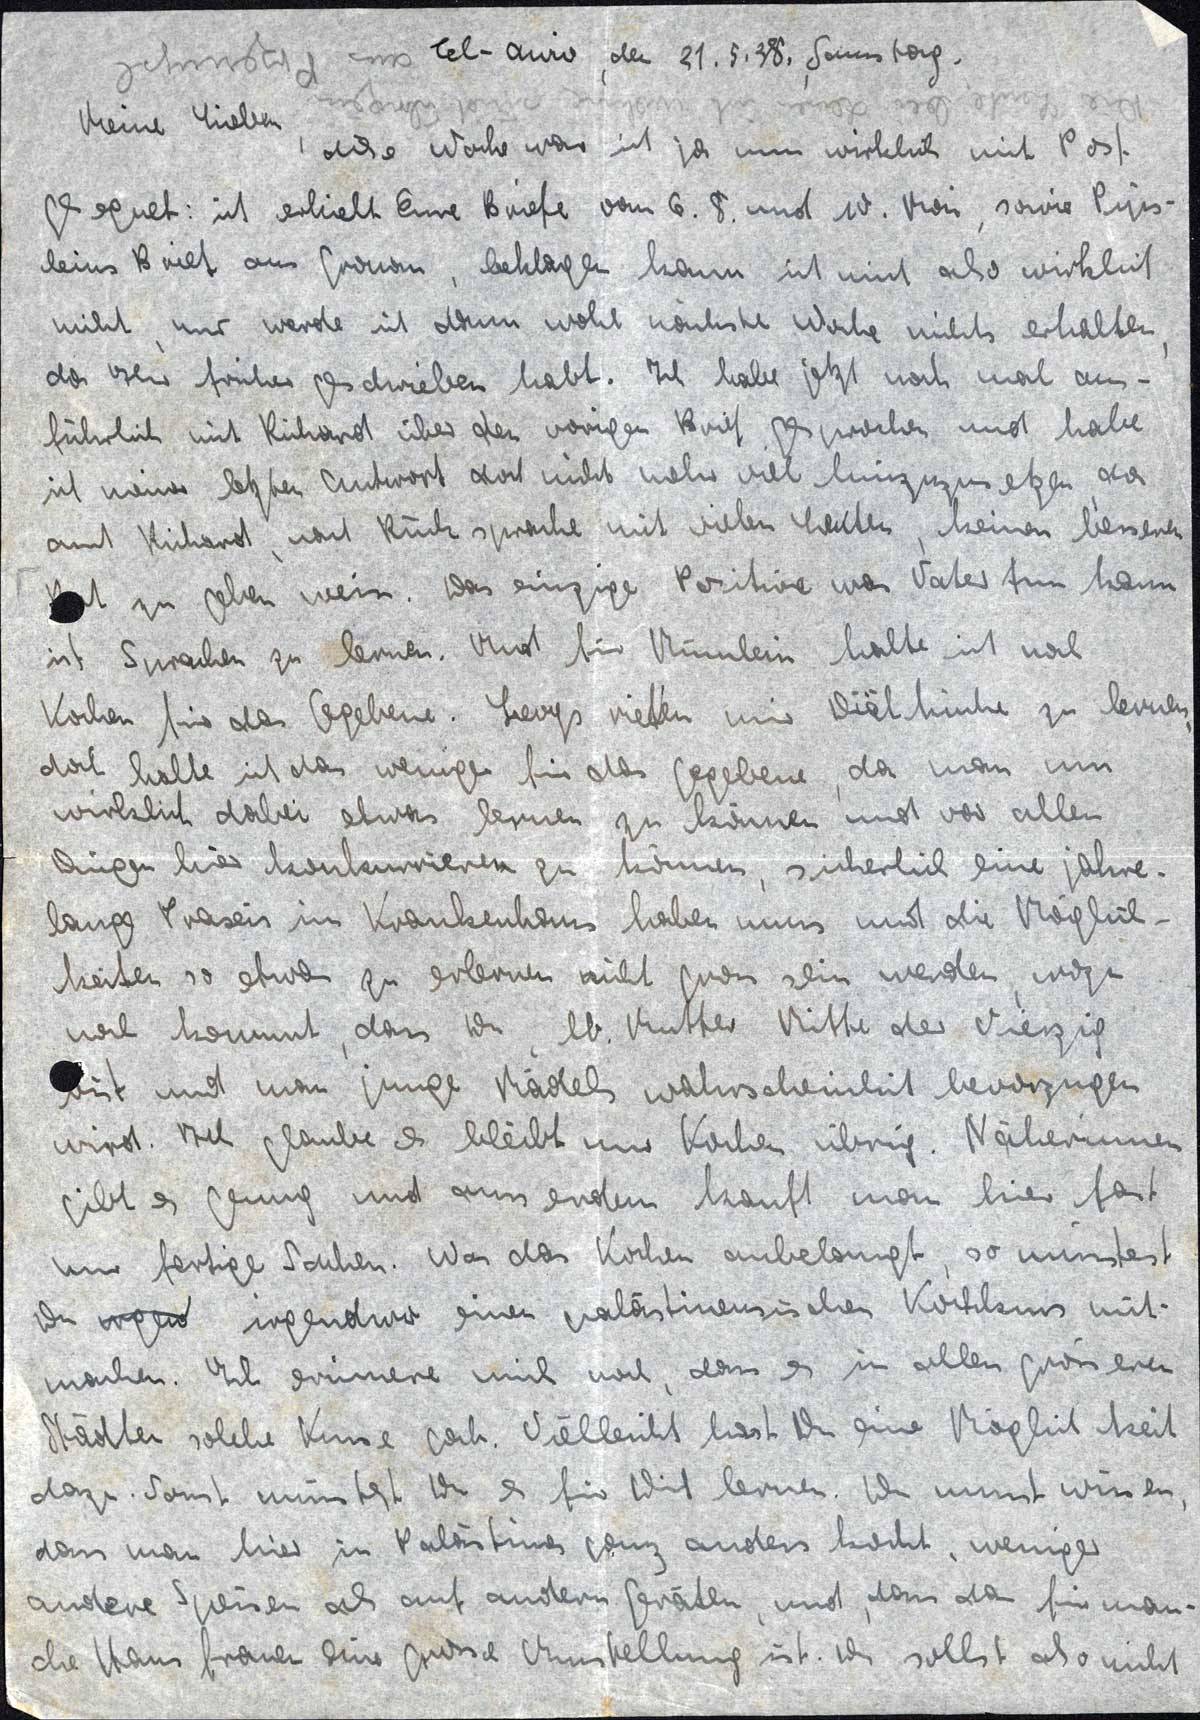 Tel-Aviv, den 21.5.38, Samstag.
Meine Lieben,
diese Woche war ich ja nun wirklich mit Post
gesegnet: ich erhielt Eure Briefe vom 6. 8. und 10. Mai, sowie
leins Brief aus , beklagen kann ich mich also wirklich
nicht, nur werde ich dann wohl nächste Woche nichts erhalten,
da Ihr früher geschrieben habt. Ich habe jetzt noch mal aus-
führlich mit Richard über den vorigen Brief gesprochen und habe
ich meiner letzten Antwort dort nicht mehr viel hinzuzusetzen, da
auch Richard, nach Rücksprache mit vielen Leuten, keinen besseren
Rat zu geben weiss. Das einzige Positive was Vater tun kann
ist Sprachen zu lernen. Und für halte ich noch
Kochen für das Gegebene. Levys rieten mir Diätküche zu lernen,
doch halte ich das weniger für das gegebene, da man um
wirklich dabei etwas lernen zu können und vor allen
Dingen hier konkurrieren zu können, sicherlich eine jahre-
lange Praxis im Krankenhaus haben muss und die Möglich-
keiten so etwas zu erlernen nicht gross sein werden, wozu
noch kommt, dass Du, lb. Mutter Mitte der Vierzig
bist und man junge Mädels wahrscheinlich bevorzugen
wird. Ich glaube es bleibt nur Kochen übrig. Näherinnen
gibt es genug und ausserdem kauft man hier fast
nur fertige Sachen. Was das Kochen anbelangt, so müsstest
Du irgend irgendwo einen palästinensischen Kochkurs mit-
machen. Ich erinnere mich noch, dass es in allen grösseren
Städten solche Kurse gab. Vielleicht hast Du eine Möglichkeit
dazu. Sonst müsstest Du es für Dich lernen. Du musst wissen,
dass man hier in Palästina ganz anders kocht, weniger
andere Speisen als auf andern Geräten, und, dass das für man-
che Hausfrauen eine grosse Umstellung ist. Du sollst also nicht